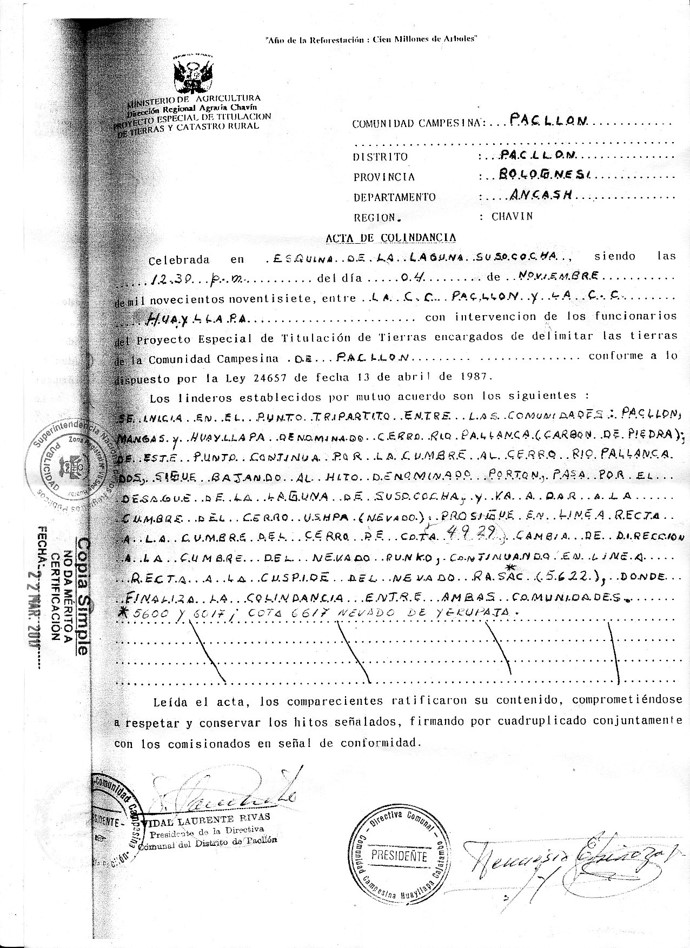 "Año de la Reforestación : Cien Millones de Arboles"
MINISTERIO DE AGRICULTURA
Dirección Regional Agraria Chavín
PROYECTO ESPECIAL DE TITULACION
DE TIERRAS Y CATASTRO RURAL
COMUNIDAD CAMPESINA: PACLLON
DISTRITO : PACLLON
PROVINCIA : BOLOGNESI
DEPARTAMENTO : ANCASH
REGION. : CHAVIN
ACTA DE COLINDANCIA
Celebrada en ESQUINA DE LA LAGUNA SUSOCOCHA, siendo las
12.30 p.m. del día 04 de NOVIEMBRE
de mil novecientos noventisiete, entre LA C.C. PACLLON Y LA C.C.
HUAYLLAPA con intervención de los funcionarios
del Proyecto Especial de Titulación de Tierras encargados de delimitar las tierras
de la Comunidad Campesina DE PACLLON conforme a lo
dispuesto por la Ley 24657 de fecha 13 de abril de 1987.
Los linderos establecidos por mutuo acuerdo son los siguientes :
SE INICIA EN EL PUNTO TRIPARTITO ENTRE LAS COMUNIDADES: PACLLON,
MANGAS y HUAYLLAPA DENOMINADO CERRO RIO PALLANCA (CARBON DE PIEDRA);
DE ESTE PUNTO CONTINUA POR LA CUMBRE AL CERRO RIO PALLANCA
DOS, SIGUE BAJANDO AL HITO DENOMINADO PORTON, PASA POR EL
DESAGUE DE LA LAGUNA DE SUSOCOCHA, y VA A DAR A LA
CUMBRE DEL CERRO USHPA (NEVADO); PROSIGUE EN LINEA RECTA
A LA CUMBRE DEL CERRO DE COTA 4929. CAMBIA DE DIRECCION
A LA CUMBRE DEL NEVADO PUNKO, CONTINUANDO EN LINEA
RECTA A LA CUSPIDE DEL NEVADO RASAC* (5.622), DONDE
FINALIZA LA COLINDANCIA ENTRE AMBAS COMUNIDADES.
* 5600 y 6017; COTA 6617 NEVADO DE YERUPAJA.
Leída el acta, los comparecientes ratificaron su contenido, comprometiéndose
a respetar y conservar los hitos señalados, firmando por cuadruplicado conjuntamente
con los comisionados en señal de conformidad.
Superintendencia Nacional
PUBLICIDAD
Copia Simple
NO DA MERITO A
CERTIFICACIÓN
FECHA: 22 MAR. 2017
Comunidad Campesina
PRESIDENTE
VIDAL LAURENTE RIVAS
Presidente de la Directiva
Comunal del Distrito de Pacllón
Directiva Comunal
PRESIDENTE
Comunidad Campesina Huayllapa